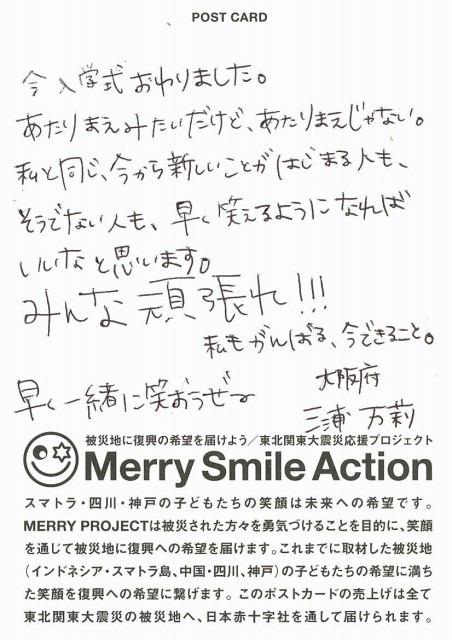 POST CARD
今入学式おわりました。
あたりまえみたいだけど、あたりまえじゃない。
私と同じ、今から新しいことがはじまる人も、
そうでない人も、早く笑えるようになれば
いいなと思います。
みんな頑張れ!!!
私もがんばる、今できること。
大阪府
早く一緒に笑おうぜー
三浦 万莉
被災地に復興の希望を届けよう／東北関東大震災応援プロジェクト
Merry Smile Action
スマトラ・四川・神戸の子どもたちの笑顔は未来への希望です。
MERRY PROJECTは被災された方々を勇気づけることを目的に、笑顔
を通じて被災地に復興への希望を届けます。これまでに取材した被災地
（インドネシア・スマトラ島、中国・四川、神戸）の子どもたちの希望に満ち
た笑顔を復興への希望に繋げます。このポストカードの売上げは全て
東北関東大震災の被災地へ、日本赤十字社を通して届けられます。